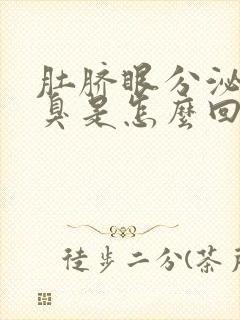 肚脐眼分泌
臭是怎麼回
徒步二分(茶戸